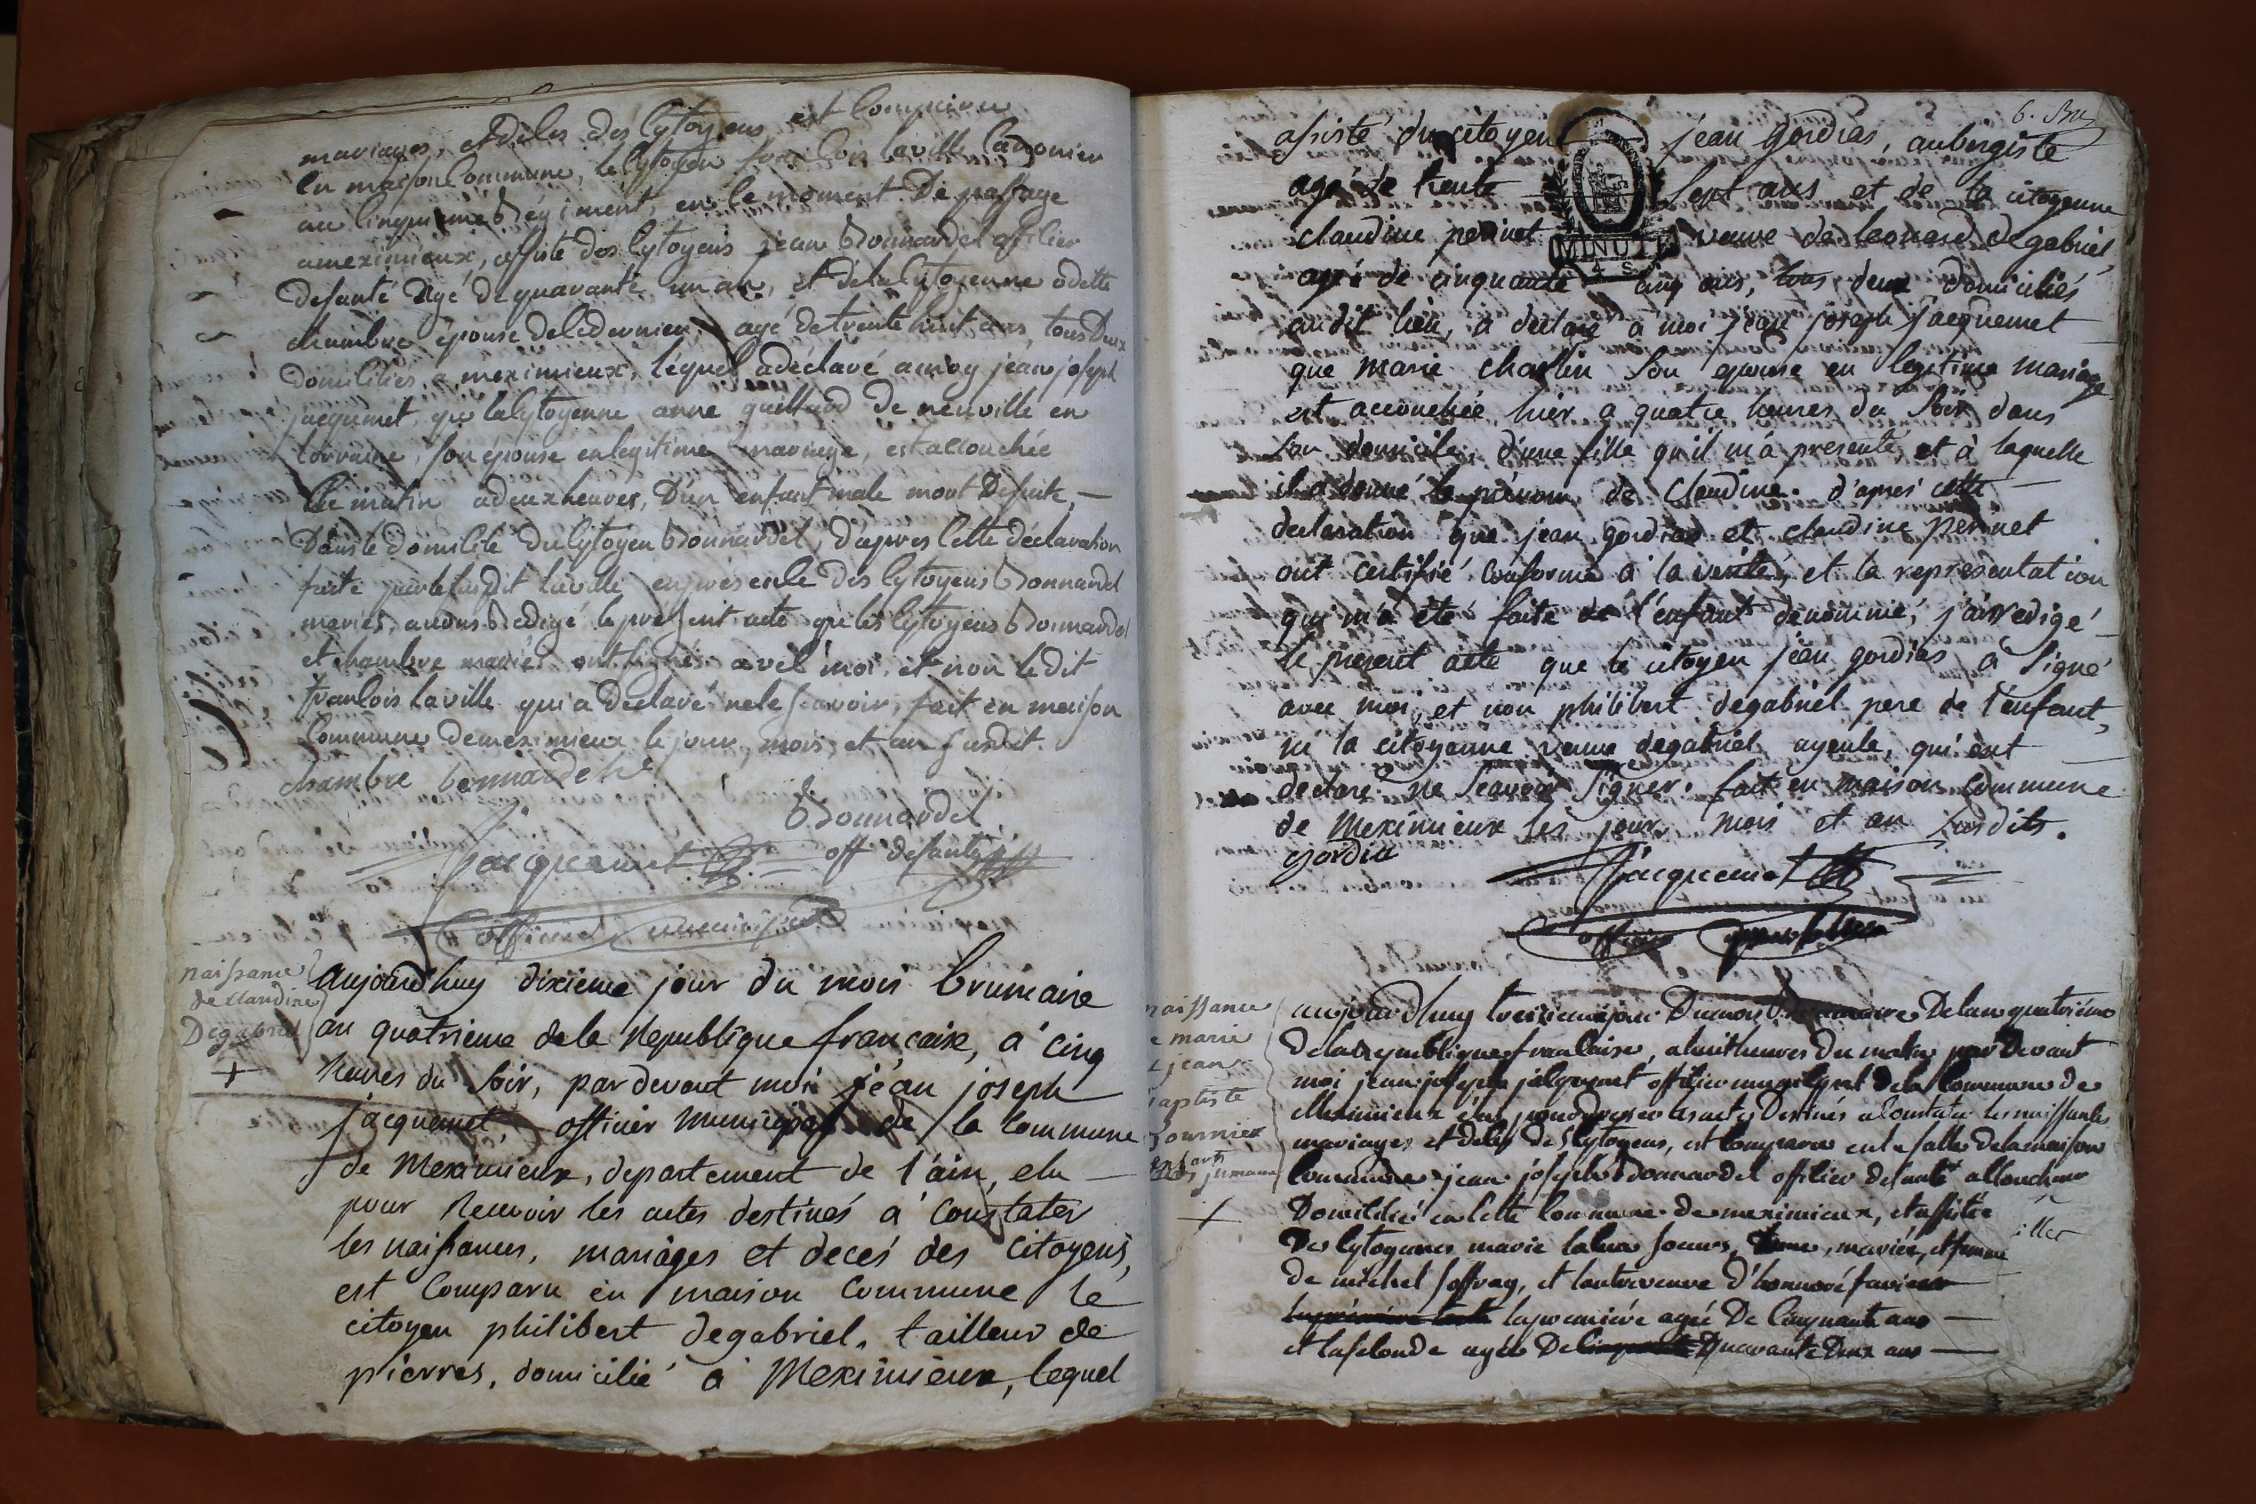 mariages, et décès des Cytoyens est Comparu
en maison Commune, le Cytoyen françois laville Canonier
au Cinquieme Régiment, en ce moment De passage
a meximieux, assisté des Cytoyens jean Bonnardel officier
desanté agé dequarante un an, et dela Cytoyenne odette
chambre épouse dece dernier, agé detrente huit ans, tous Deux
domiciliés a meximieux, lequel adéclaré amoy jean joseph
jacquemet, que la Cytoyenne anne guillard de neuville en
Lorraine, son épouse enlegitime mariage, est accouchée
Ce matin adeuxheures, D'un enfant male mort Desuite, —
Dans le domicile du Cytoyen Bonnardel, D'apres Cette Déclaration
faite par le susdit laville en presence des Cytoyens Bonnardel
mariés, avons Redigé le present acte que les Cytoyens Bonnardel
et chambre mariés ont signé avec moi, et non ledit
françois laville qui a Declaré nele sçavoir, fait en maison
Commune demeximieux le jour, mois et an susdit.
chambre bonnardel
Bonnardel
jacquemet off desanté
officier municipal
naissance
de Claudine
Degabriel
+
aujourd'huy dixieme jour du mois brumaire
an quatrieme de la Republique francaise, a cinq
heures du soir, pardevant moi jean joseph
jacquemet, officier municipal de la commune
de Meximieux, departement de l'ain, elu —
pour Recevoir les actes destinés a Constater
les naissances, mariages et decés des citoyens,
est Comparu en maison commune le
citoyen philibert degabriel, tailleur de
pierres, domicilié a Meximieux, lequel
6. Bru
assisté du citoyen jean gordias, aubergiste
agé de trente sept ans et de la citoyenne
claudine perinet veuve de leonard degabriel,
agé de cinquante cinq ans, tous deux domiciliés
MINUTE
4 S
audit lieu, a declaré a moi jean joseph jacquemet
que marie charlin son epouse en legitime mariage
est accouchée hier a quatre heures du soir dans
son domicile d'une fille qu'il m'a presenté et à laquelle
il a donné le prénom de claudine. d'apres cette
declaration que jean gordias et claudine perinet
ont certifié conforme a la verité, et la representation
qui m'a été faite de l'enfant denommé, j'ai redigé
le present acte que le citoyen jean gordias a signé
avec moi, et non philibert degabriel pere de l'enfant,
ni la citoyenne veuve degabriel ayeule, qui ont
declaré ne sçavoir signer. fait en maison commune
de Meximieux les jour, mois et an susdits.
gordia
jacquemet
officier
naissance
marie
jean
aptiste
fournier
jumeaux
+
aujourd'huy treizieme jour Dumois Brumaire Delan quatriéme
dela Republique francaise, ahuit heures du matin par Devant
moi jean joseph jacquemet officier municipal dela Commune de
Meximieux élu pour Dresser les actes Destinés a Constater les naissances
mariages et décés des Cytoyens, est Comparu en la salle dela maison
Commune jean joseph Bonnardel officier desanté accoucheur
Domicilié en Cette Commune de meximieux, et assisté
Des Cytoyennes marie soeurs, mariée, et femme
de michel joffray, et lautre veuve d'honnoré
la premiére agée De Cinquante ans —
et la seconde agée De Quarante Deux ans —